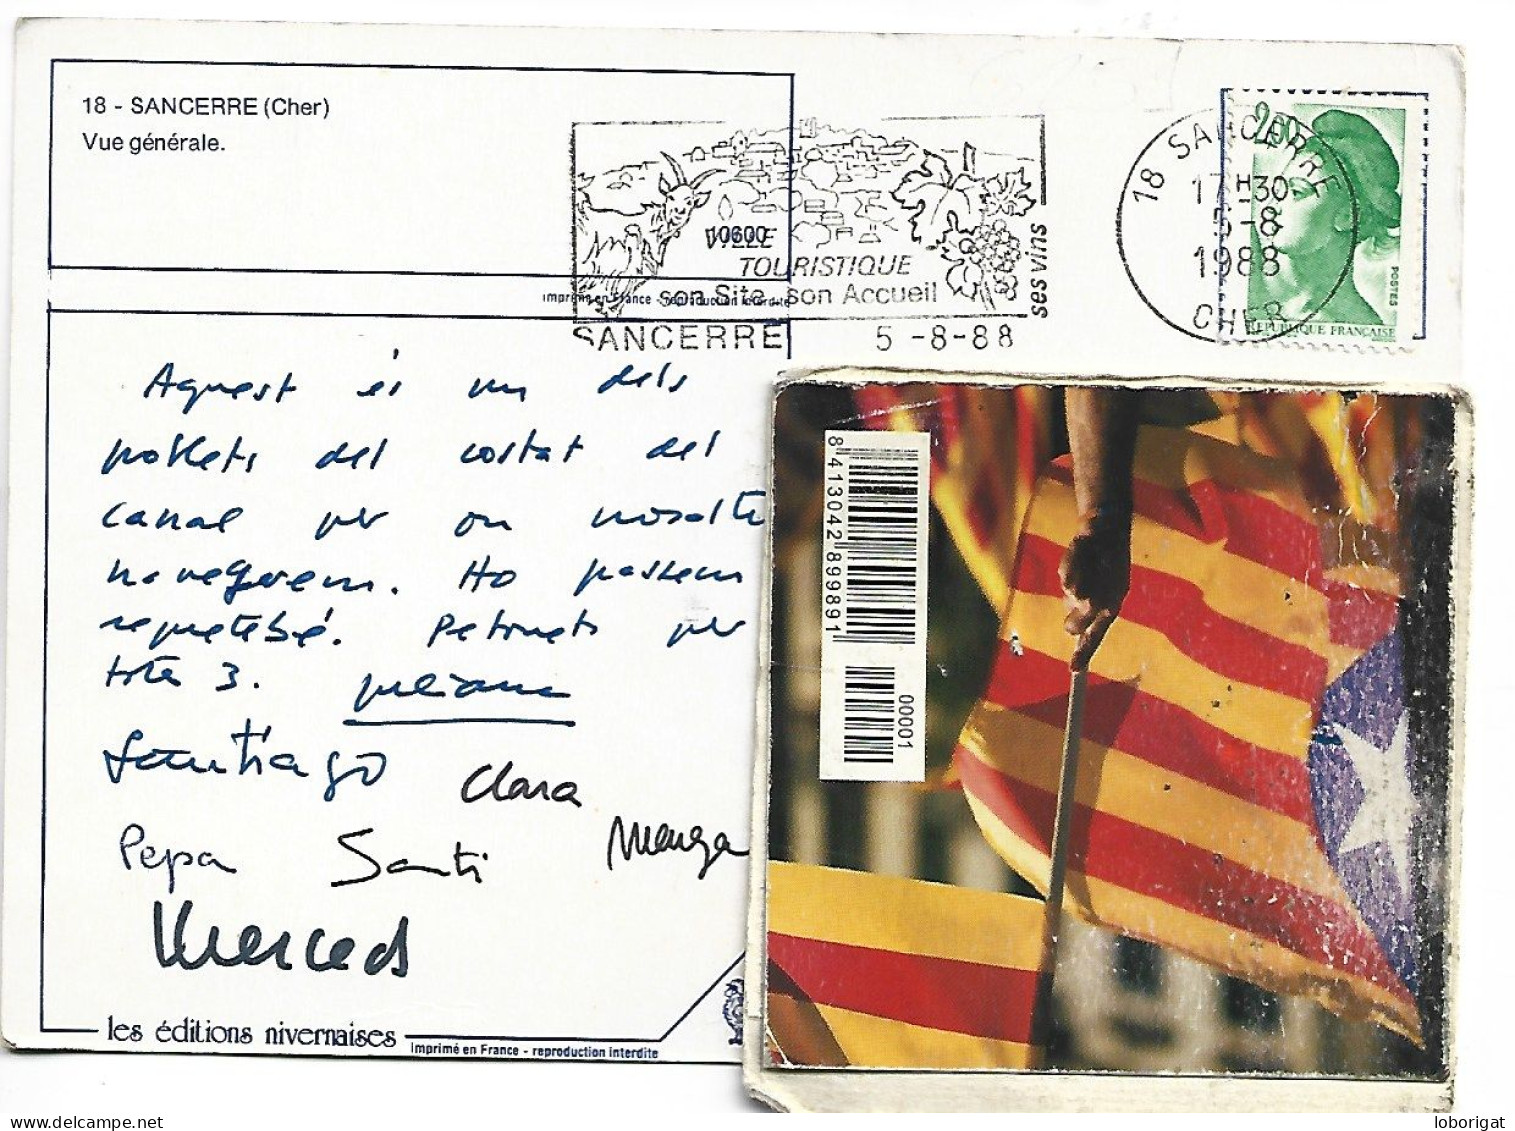 18 - SANCERRE (Cher)
Vue générale.
10600
VILLE
TOURISTIQUE
son Site, son Accueil
ses vins
SANCERRE 5-8-88
18 SANCERRE
17H30
5-8
1988
CHER
2,00
POSTES
REPUBLIQUE FRANÇAISE
Imprimé en France - reproduction interdite
Aquest és un dels
poblets del costat del
canal per on nosaltres
naveguem. Ho passem
requetebé. Petonets per
tots 3.
Santiago Clara
Pepa Santi
Merced
8413042899891
00001
les éditions nivernaises
Imprimé en France - reproduction interdite
loborigat
www.delcampe.net